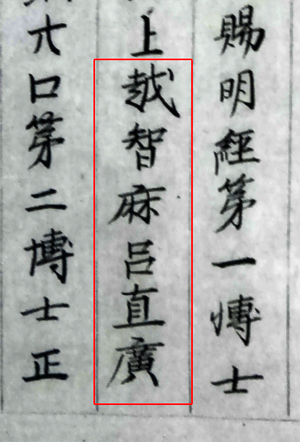 賜明經第一博士
上越智麻呂直廣
六口第二博士正